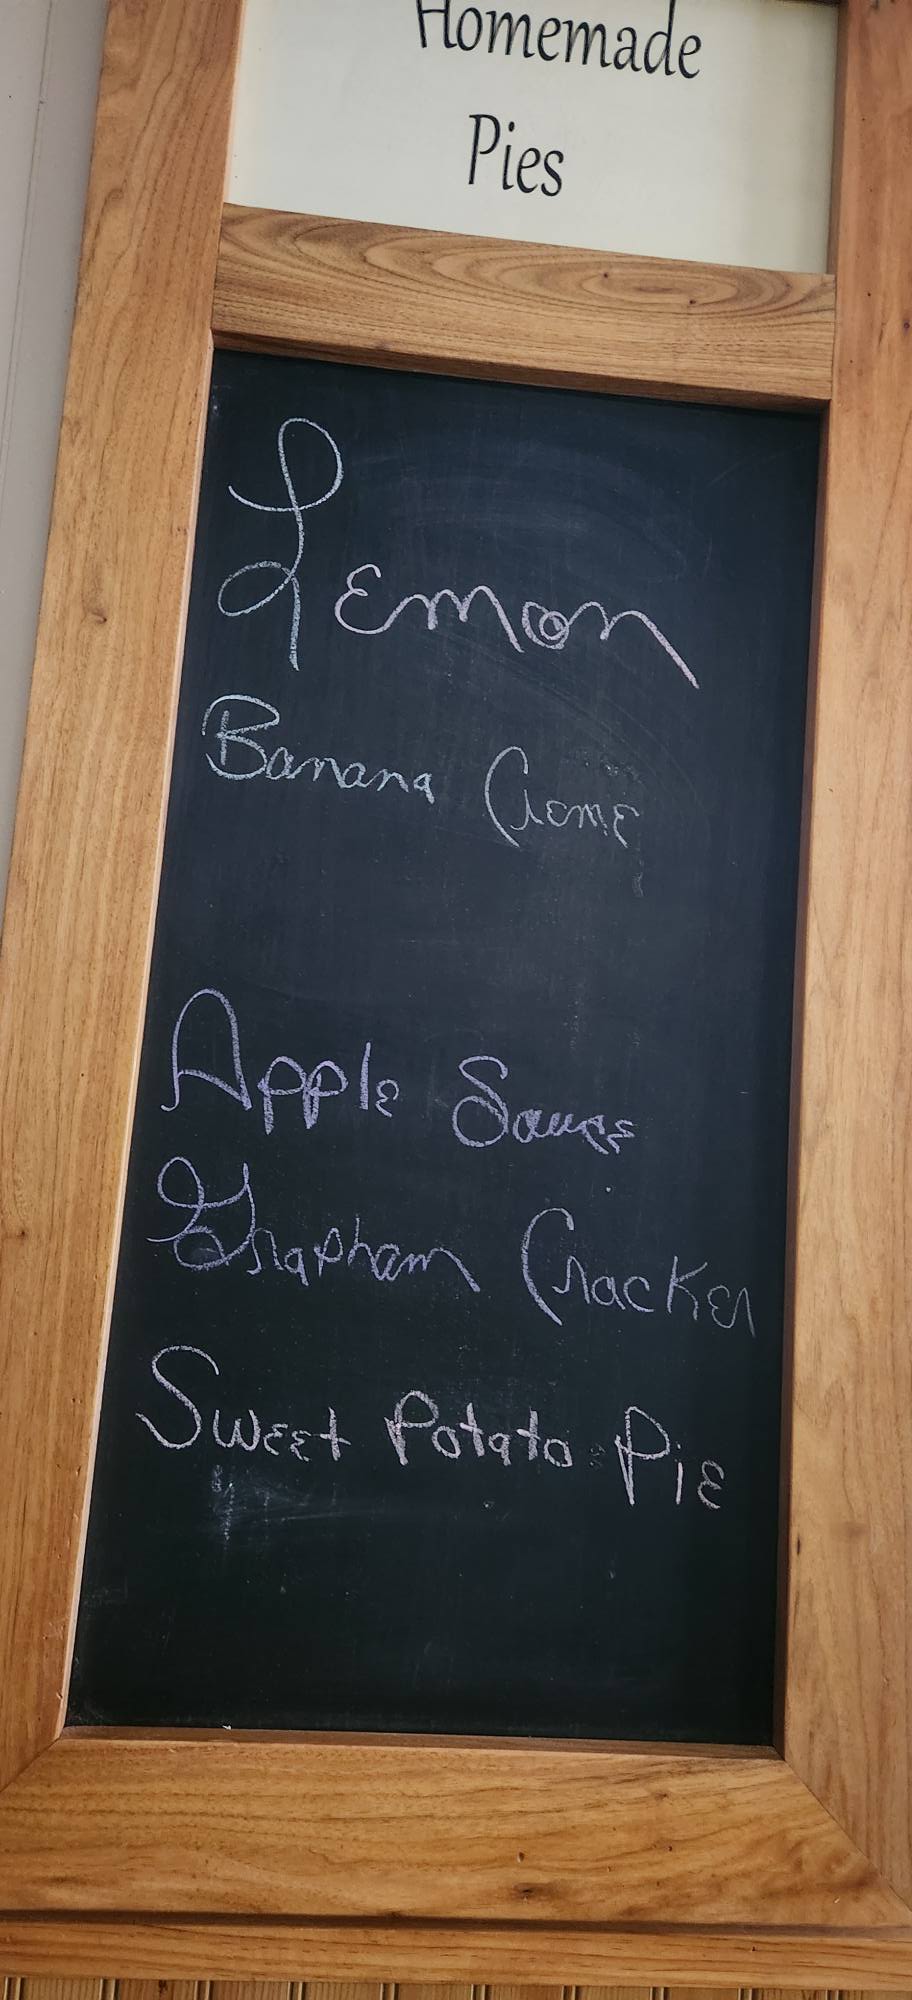 Homemade
Pies
Lemon
Banana Creme
Apple Sauce
Grapham Cracker
Sweet Potato Pie